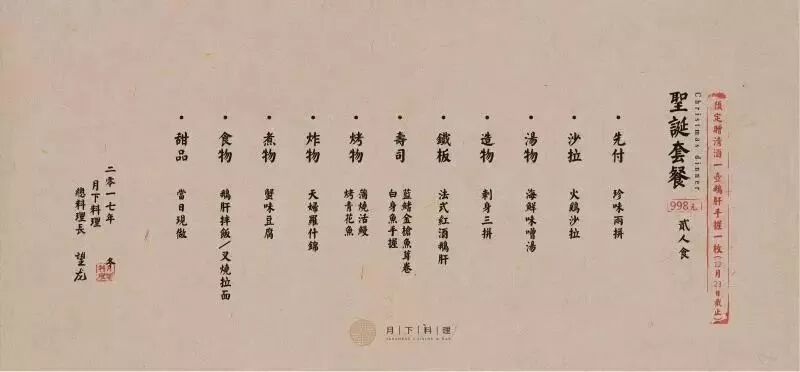 預定贈清酒一壺鵝肝手握一枚(12月23日截止)
聖誕套餐
Christmas dinner
998元
貳人食
先付
珍味兩拼
沙拉
火鷄沙拉
湯物
海鮮味噌湯
造物
刺身三拼
鐵板
法式紅酒鵝肝
壽司
藍鰭金槍魚茸卷
白身魚手握
烤物
蒲燒活鰻
烤青花魚
炸物
天婦羅什錦
煮物
蟹味豆腐
食物
鵝肝拌飯/叉燒拉面
甜品
當日現做
二零一七年 冬
月下料理
總料理長 望左
月下料理
JAPANESE CUISINE & BAR